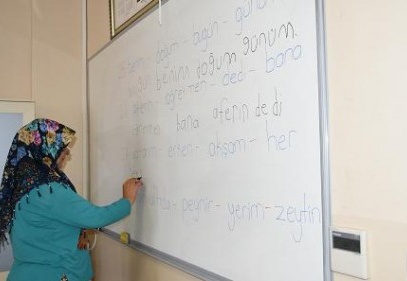 doğum - bugün - günüm
Bugün benim doğum günüm.
öğretmen - dedi - bana
bana aferin dedi
erken - akşam - her
peynir - yerim - zeytin